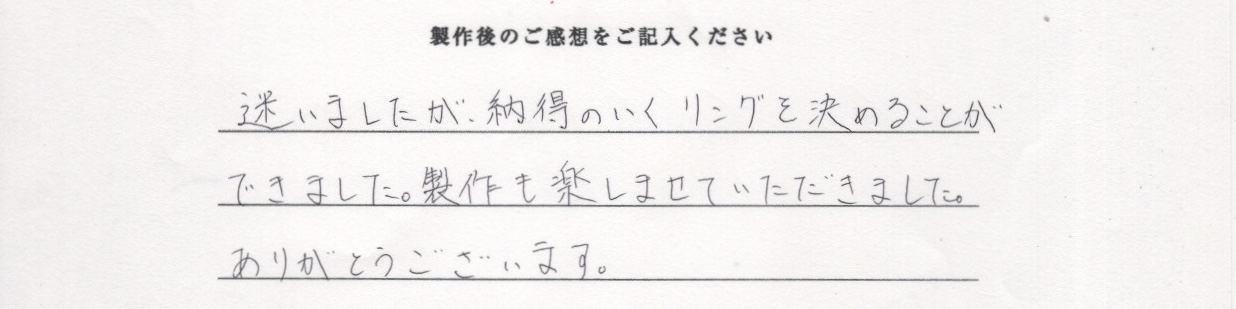 製作後のご感想をご記入ください
迷いましたが、納得のいくリングを決めることが
できました。製作も楽しませていただきました。
ありがとうございます。